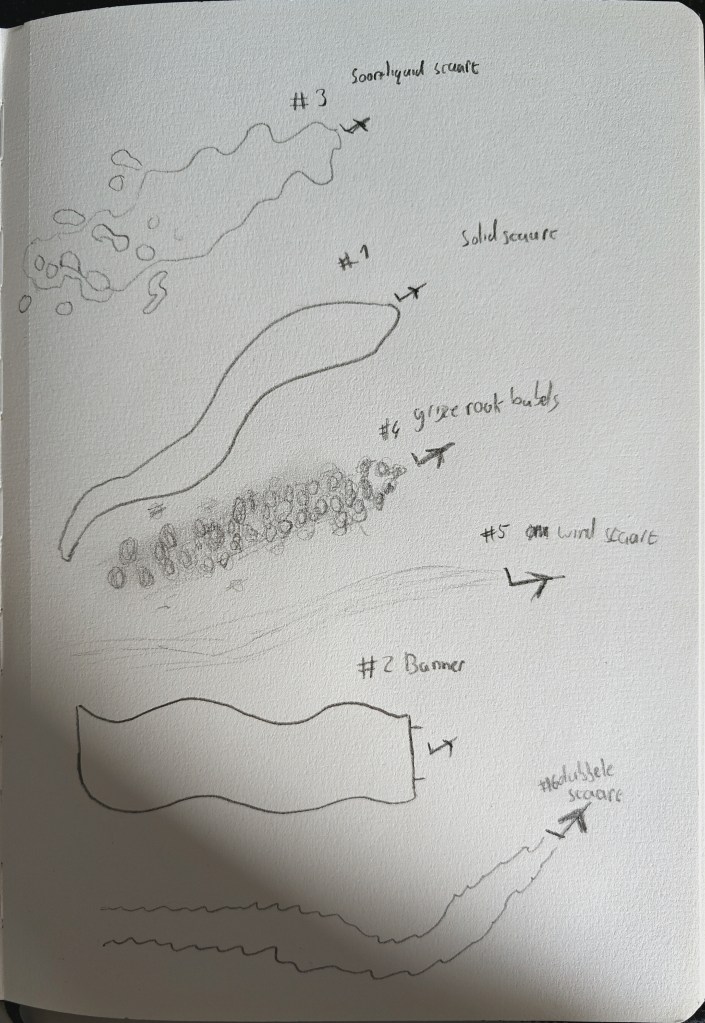 #3 Soort liquid staart
#1 Solid staart
#4 grijze rook bubels
#5 wind staart
#2 Banner
#6 dubbele
staart